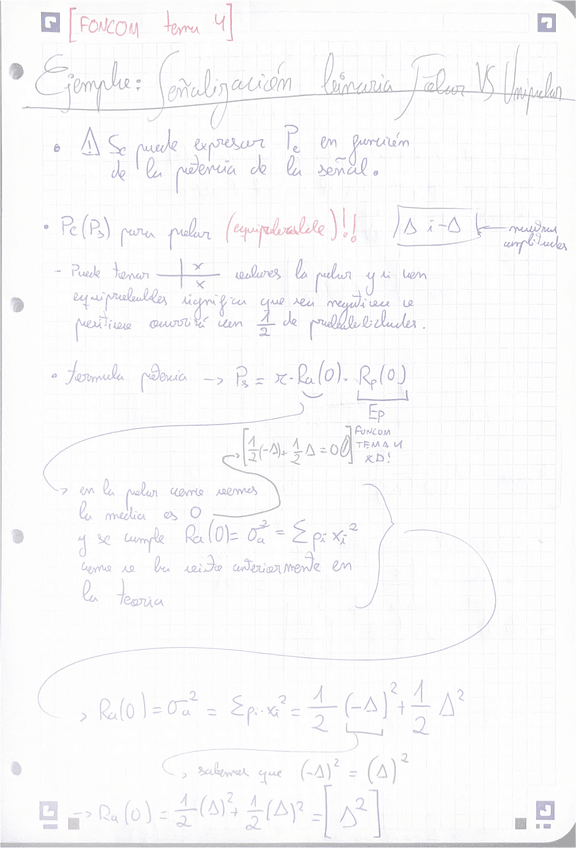 [FONCOM tema 4]
Ejemplo: Señalización binaria Polar VS Unipolar
• ⚠ Se puede expresar Pe en función
de la potencia de la señal.
• Pe(Ps) para polar (equiprobable)!!
Δ i -Δ ← nuestras
amplitudes
- Puede tomar x | x valores la polar y si son
equiprobables significa que sea negativo o
positivo ocurrirá con 1/2 de probabilidades.
• formula potencia → Ps = r · Ra(0) · Rp(0)
Ep
[1/2(-Δ) + 1/2 Δ = 0]
FONCOM
TEMA 4
XD!
→ en la polar como vemos
la media es 0
y se cumple Ra(0) = σa² = Σ pi xi²
como se ha visto anteriormente en
la teoria
→ Ra(0) = σa² = Σ pi · xi² = 1/2 (-Δ)² + 1/2 Δ²
→ sabemos que (-Δ)² = (Δ)²
→ Ra(0) = 1/2 (Δ)² + 1/2 (Δ)² = [Δ²]